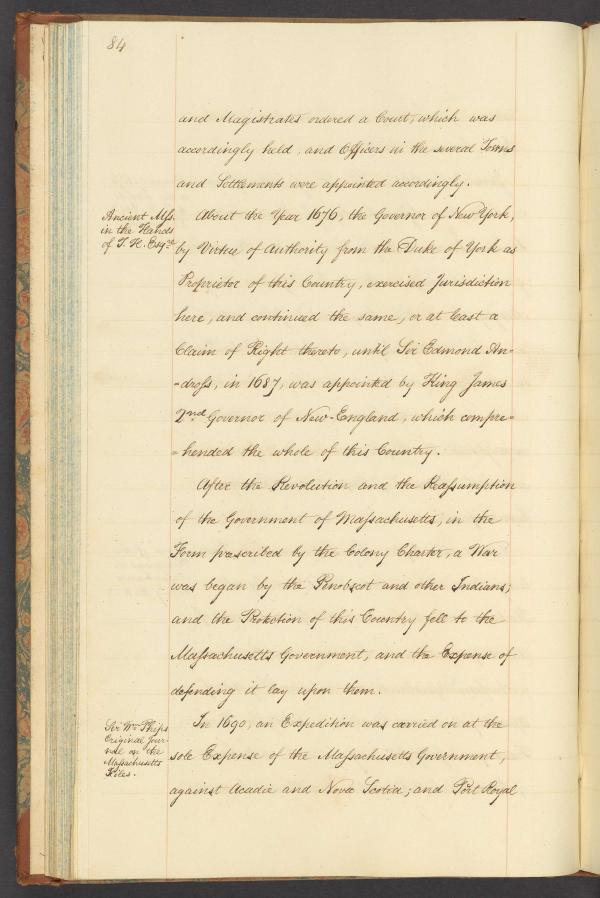 84
and Magistrates ordered a Court, which was
accordingly held, and Officers in the several Towns
and Settlements were appointed accordingly.
Ancient Mſs.
in the Hands
of T. H. Esqre
About the Year 1676, the Governor of New York,
by Virtue of Authority from the Duke of York as
Proprietor of this Country, exercised Jurisdiction
here, and continued the same, or at least a
Claim of Right thereto, until Sir Edmond An-
-droſs, in 1687, was appointed by King James
2nd Governor of New-England, which compre=
=hended the whole of this Country.
After the Revolution and the Reaſsumption
of the Government of Maſsachusetts, in the
Form prescribed by the Colony Charter, a War
was began by the Penobscot and other Indians;
and the Protection of this Country fell to the
Maſsachusetts Government, and the Expense of
defending it lay upon them.
Sir Wm Phips
Original Jour-
nal on the
Maſsachusetts
Files.
In 1690, an Expedition was carried on at the
sole Expense of the Maſsachusetts Government,
against Acadie and Nova Scotia; and Port Royal